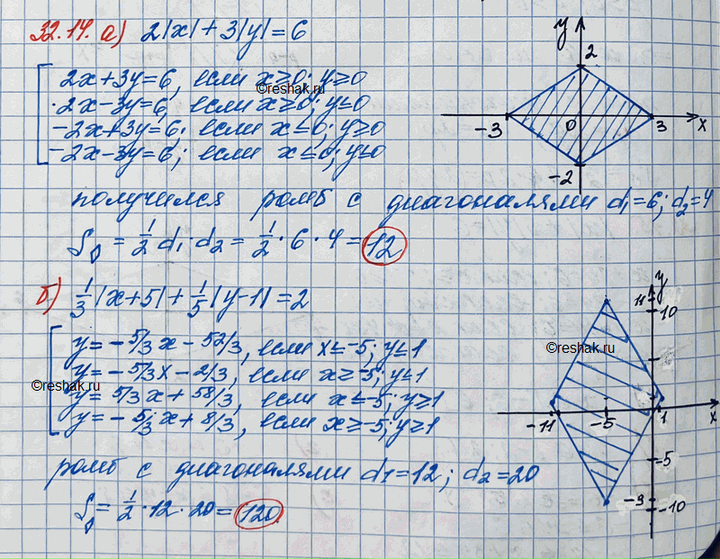 32.14. а) 2|x| + 3|y| = 6
2x+3y=6, если x≥0; y≥0
2x-3y=6, если x≥0; y≤0
-2x+3y=6; если x≤0; y≥0
-2x-3y=6; если x≤0; y≤0
©reshak.ru
y
2
-3
0
3
x
-2
получился ромб с диагоналями d₁=6; d₂=4
S◊ = 1/2 d₁·d₂ = 1/2 · 6 · 4 = 12
б) 1/3|x+5| + 1/5|y-1| = 2
y = -5/3 x - 52/3, если x≤-5; y≤1
y = -5/3 x - 2/3, если x≥-5; y≤1
y = 5/3 x + 58/3, если x≤-5; y≥1
y = -5/3 x + 8/3, если x≥-5; y≥1
©reshak.ru
y
11
10
©reshak.ru
-11
-5
1
x
-5
-9
-10
ромб с диагоналями d₁=12; d₂=20
S◊ = 1/2 · 12 · 20 = 120